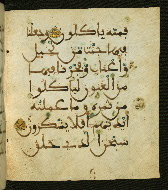 فمنه ياكلون وجعلنا
فيها جنت من نخيل
واعنب وفجرنا فيها
من العيون لياكلوا
من ثمره وما عملته
ايديهم افلا يشكرون
سبحن الذي خلق